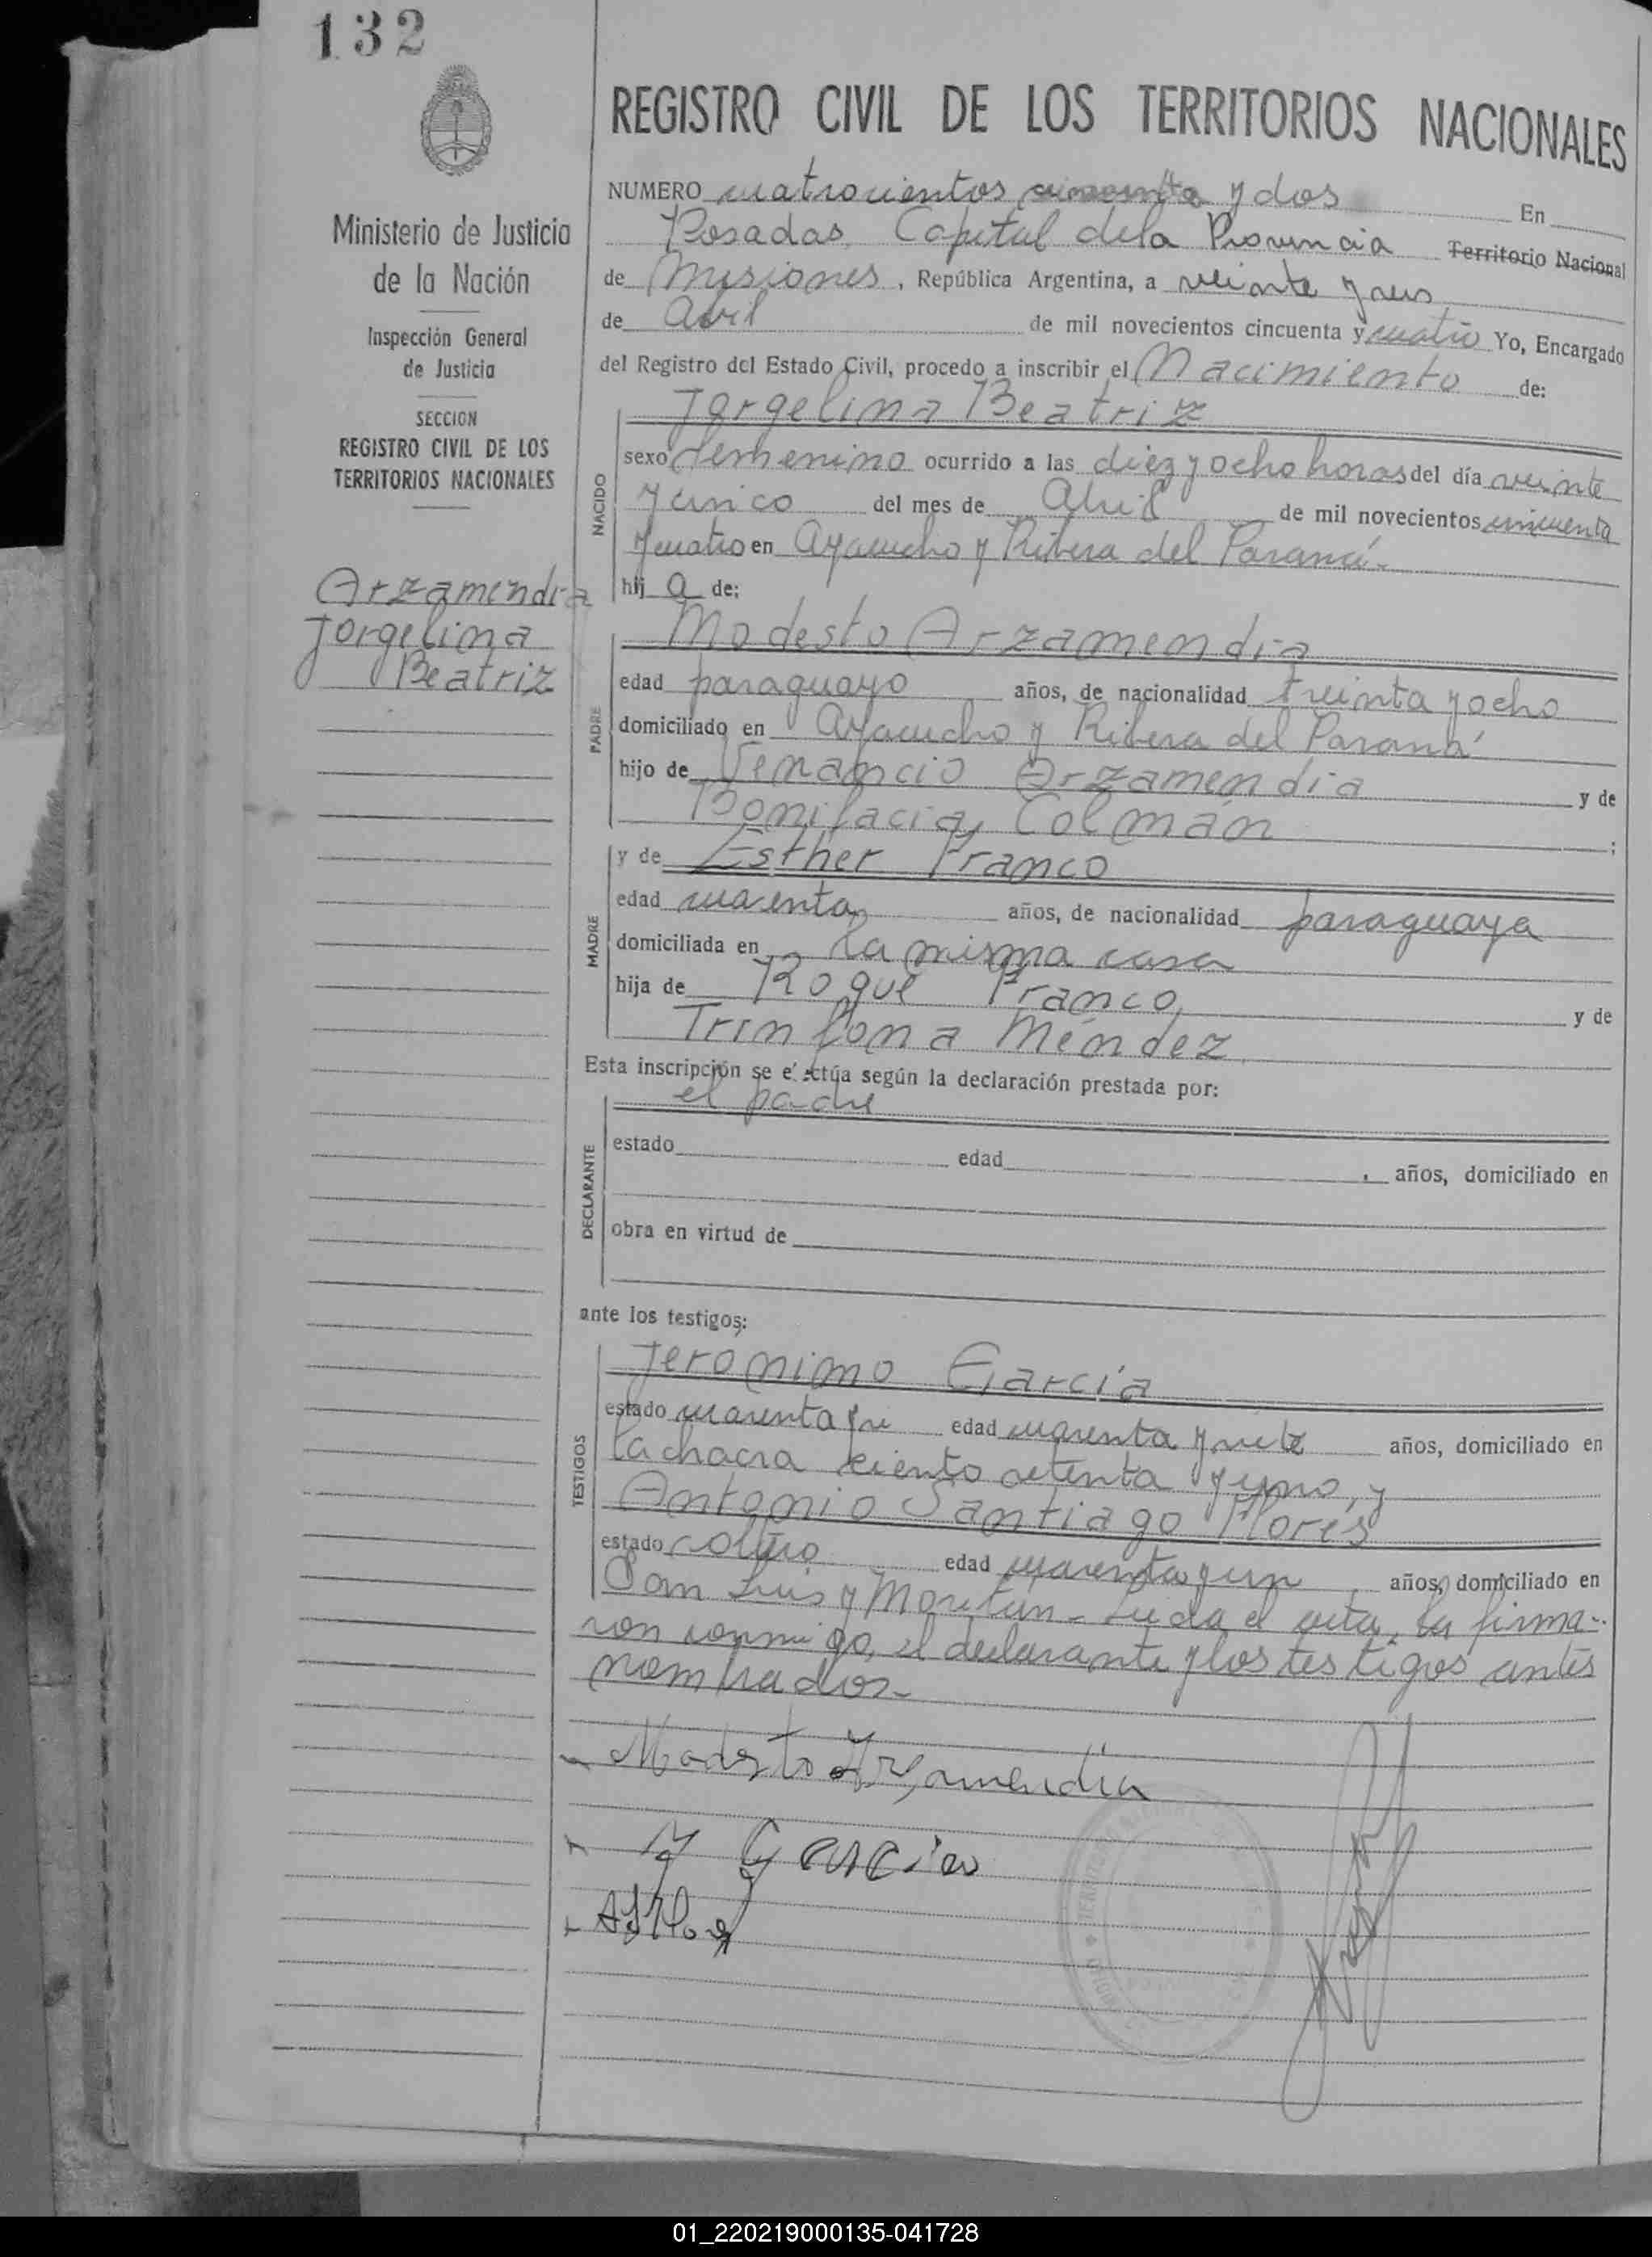 132
Ministerio de Justicia
de la Nación
Inspección General
de Justicia
SECCION
REGISTRO CIVIL DE LOS
TERRITORIOS NACIONALES
Arzamendia
Jorgelina
Beatriz
REGISTRO CIVIL DE LOS TERRITORIOS NACIONALES
NUMERO cuatrocientos cincuenta y dos En
Posadas, Capital dela Provincia Territorio Nacional
de Misiones, República Argentina, a veinte y seis
de Abril de mil novecientos cincuenta y cuatro Yo, Encargado
del Registro del Estado Civil, procedo a inscribir el Nacimiento de:
Jorgelina Beatriz
NACIDO
sexo femenino ocurrido a las diez y ocho horas del día veinte
y cinco del mes de Abril de mil novecientos cincuenta
y cuatro en Ayacucho y Ribera del Paraná.-
hij a de:
Modesto Arzamendia
PADRE
edad paraguayo años, de nacionalidad treinta y ocho
domiciliado en Ayacucho y Ribera del Paraná
hijo de Venancio Arzamendia y de
Bonifacia Colmán ;
MADRE
y de Esther Franco
edad cuarenta años, de nacionalidad paraguaya
domiciliada en la misma casa
hija de Roque Franco, y de
Trinfona Méndez
Esta inscripción se efectúa según la declaración prestada por:
el padre
DECLARANTE
estado edad , años, domiciliado en
obra en virtud de
ante los testigos:
Jeronimo García
TESTIGOS
estado cuarenta y edad cuarenta y siete años, domiciliado en
la chacra ciento setenta y uno, y
Antonio Santiago Flores
estado soltero edad cuarenta y un años, domiciliado en
San Luis y Moritán.- Leida el acta, la firma-
ron conmigo, el declarante y los testigos antes
nombrados.-
Modesto Arzamendia
J Garcia
ASFlores
01_220219000135-041728